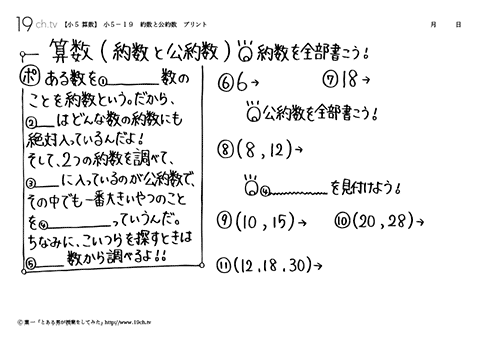 19ch.tv 【小5 算数】 小5-19 約数と公約数 プリント 月 日
算数(約数と公約数)
ポ ある数を①______数の
ことを約数という。だから、
②___はどんな数の約数にも
絶対入っているんだよ!
そして、2つの約数を調べて、
③___に入っているのが公約数で、
その中でも一番大きいやつのこと
を④______っていうんだ。
ちなみに、こいつらを探すときは
⑤___数から調べるよ!!
約数を全部書こう!
⑥6→ ⑦18→
公約数を全部書こう!
⑧(8,12)→
④______を見付けよう!
⑨(10,15)→ ⑩(20,28)→
⑪(12,18,30)→
Ⓒ葉一「とある男が授業をしてみた」http://www.19ch.tv